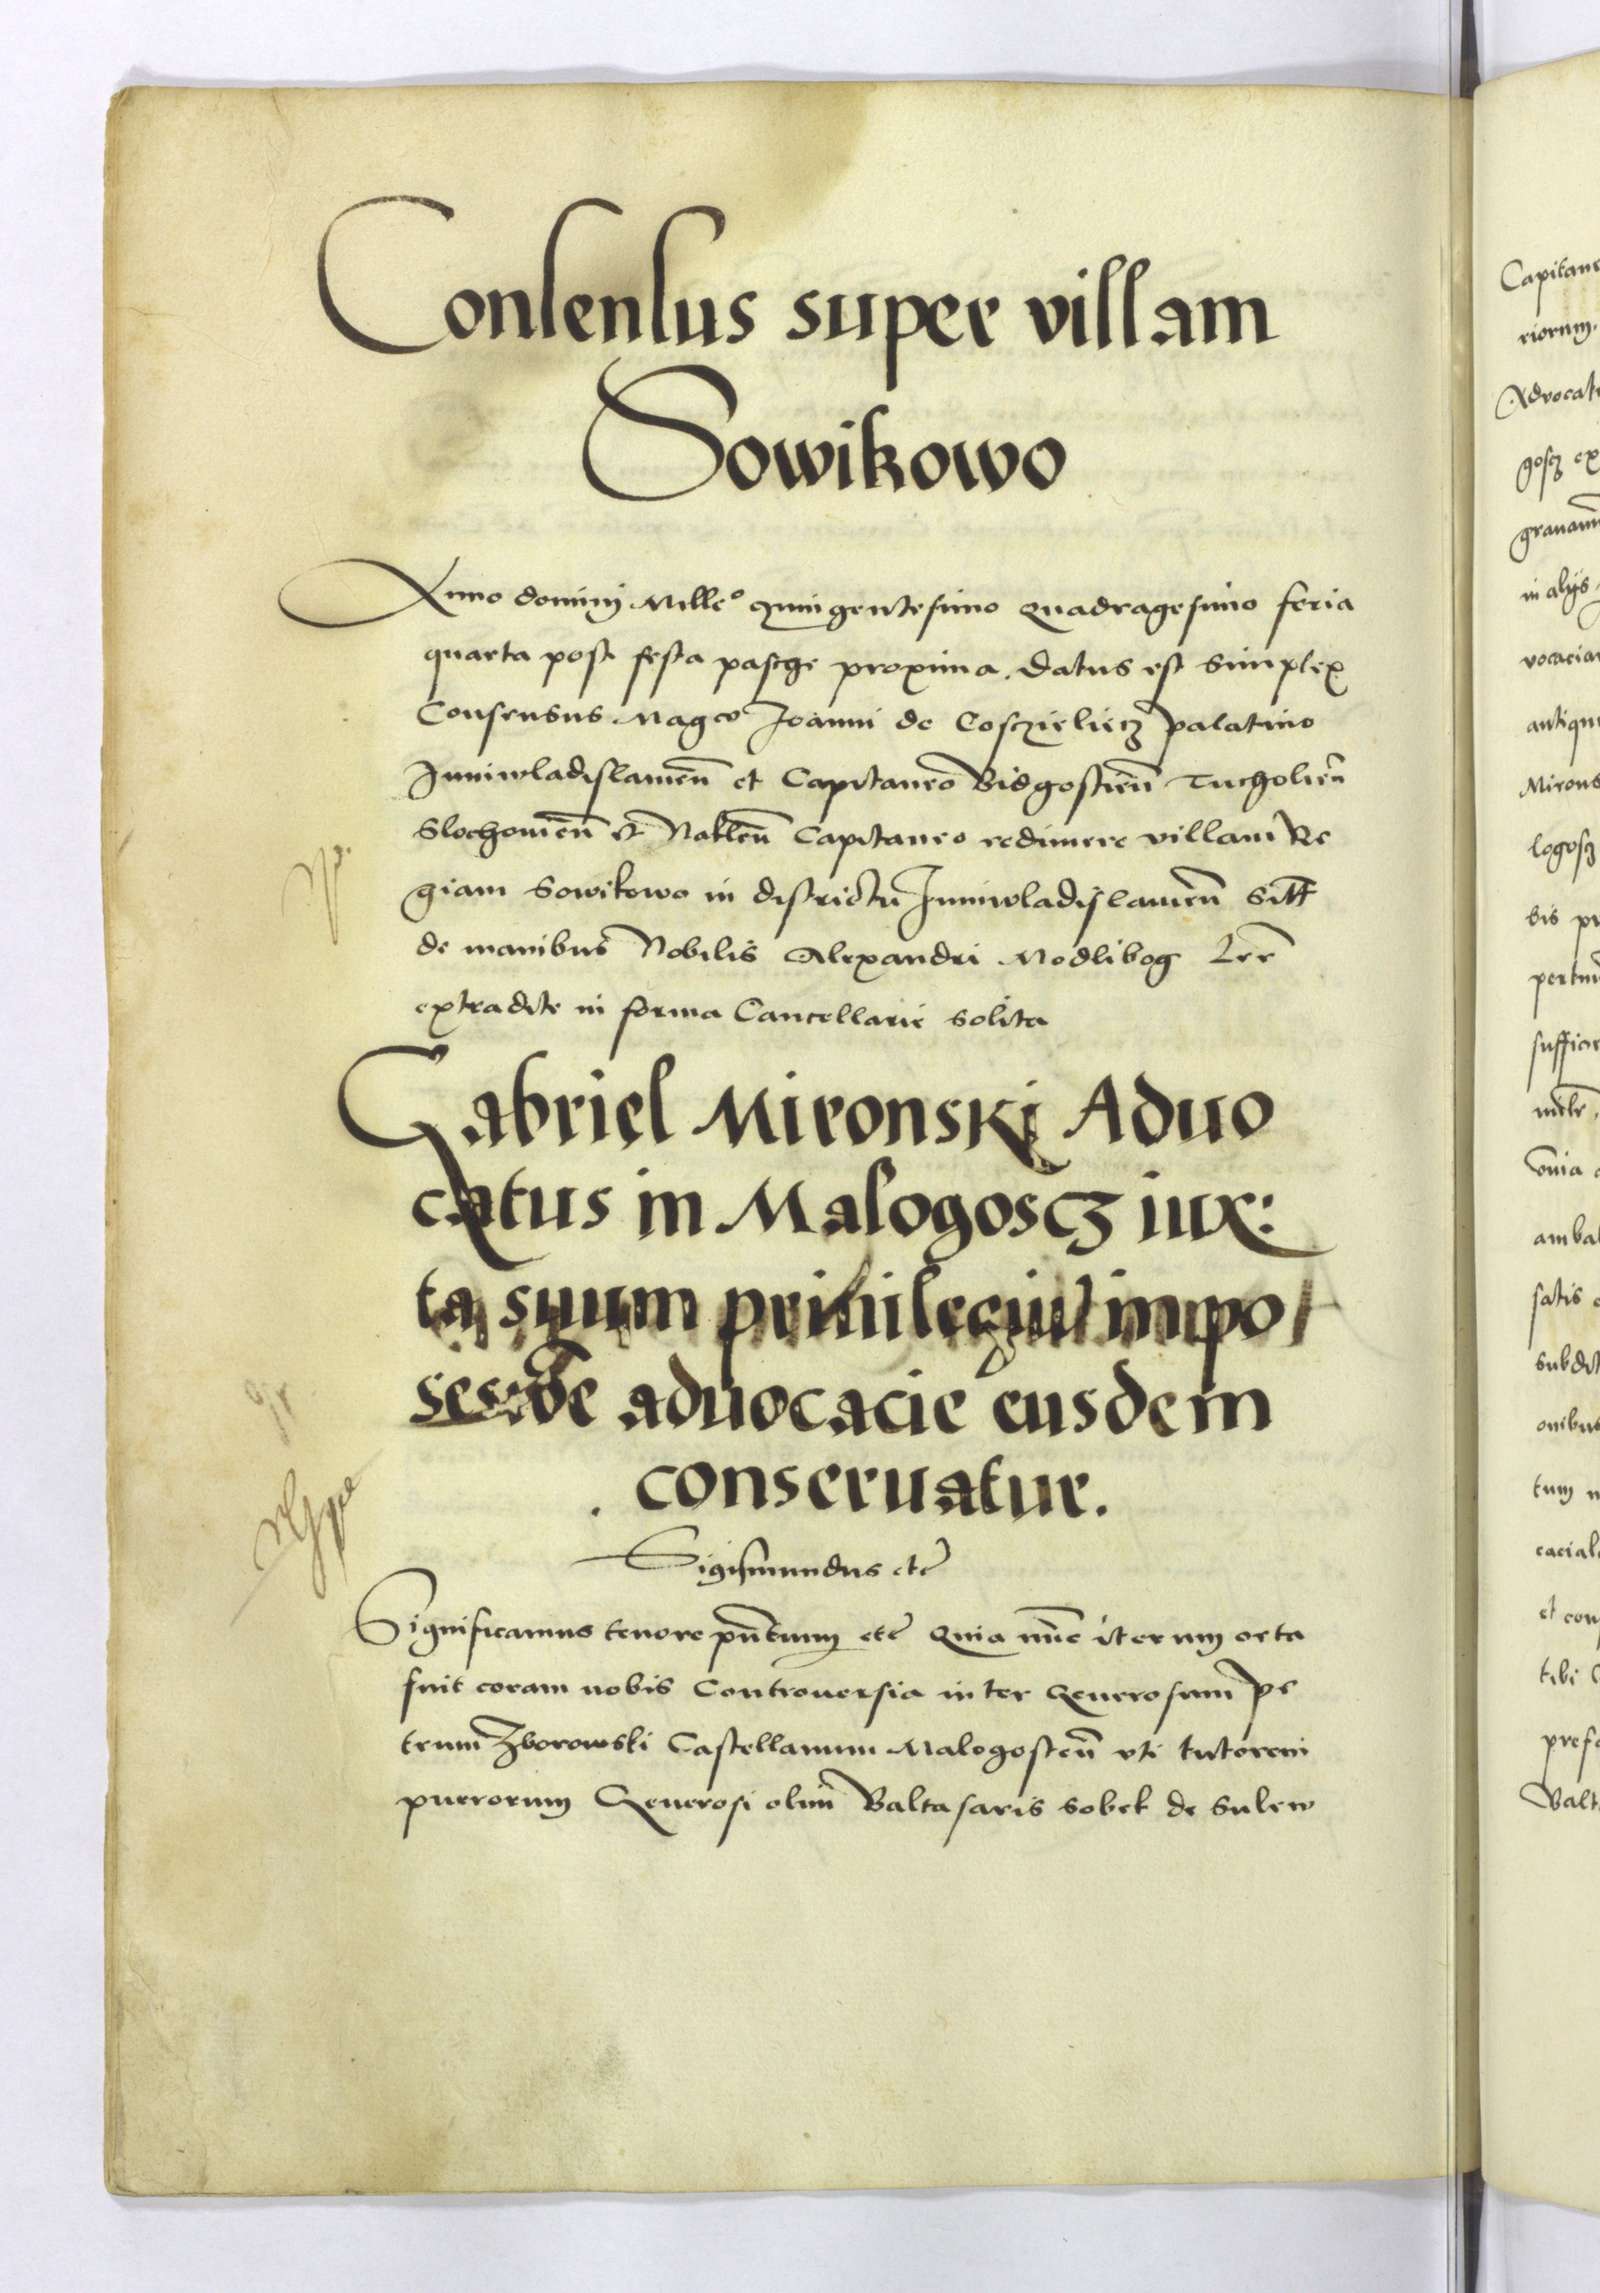 Consensus super villam
Sowikowo
Anno dominj Mille° Quingentesimo quadragesimo feria
quarta post festa pasche proxima. datus est simplex
Consensus Magco Joanni de Cosczieliecz palatino
Juniwladislauien̄ et Capitaneo Bidgostien̄ Tucholien̄
Slochouien̄ et Naklen̄ Capitaneo redimere villam Re
giam Sowikowo in districtu Juniwladislauien̄ Sitt
de manibus Nobilis Alexandri Modlibog Lrē
extradite in forma Cancellarie solita
Gabriel Mironskj Aduo
catus in Malogoscz iux:
ta suum priuilegiū in po
sesiōe aduocacie eusdem
. conseruatur.
Sigismundus etc̄
Significamus tenore pn̄tium etc̄ Quia nūc iterum orta
fuit coram nobis Controuersia inter Generosum Pe
trum Zborowski Castellanum Malogosten̄ vti tutorem
puerorum Generosi olim Baltasaris Sobek de Sulew
Capitane
riorum.
Aduocat
goscz ex
grauam
in alijs
vocacia
antiqu
Mirons
logoscz
bis pr
pertin
sufficie
omnia
ambal
satis
subdit
onibus
tum
cacial
et con
tibi
prefa
Balt